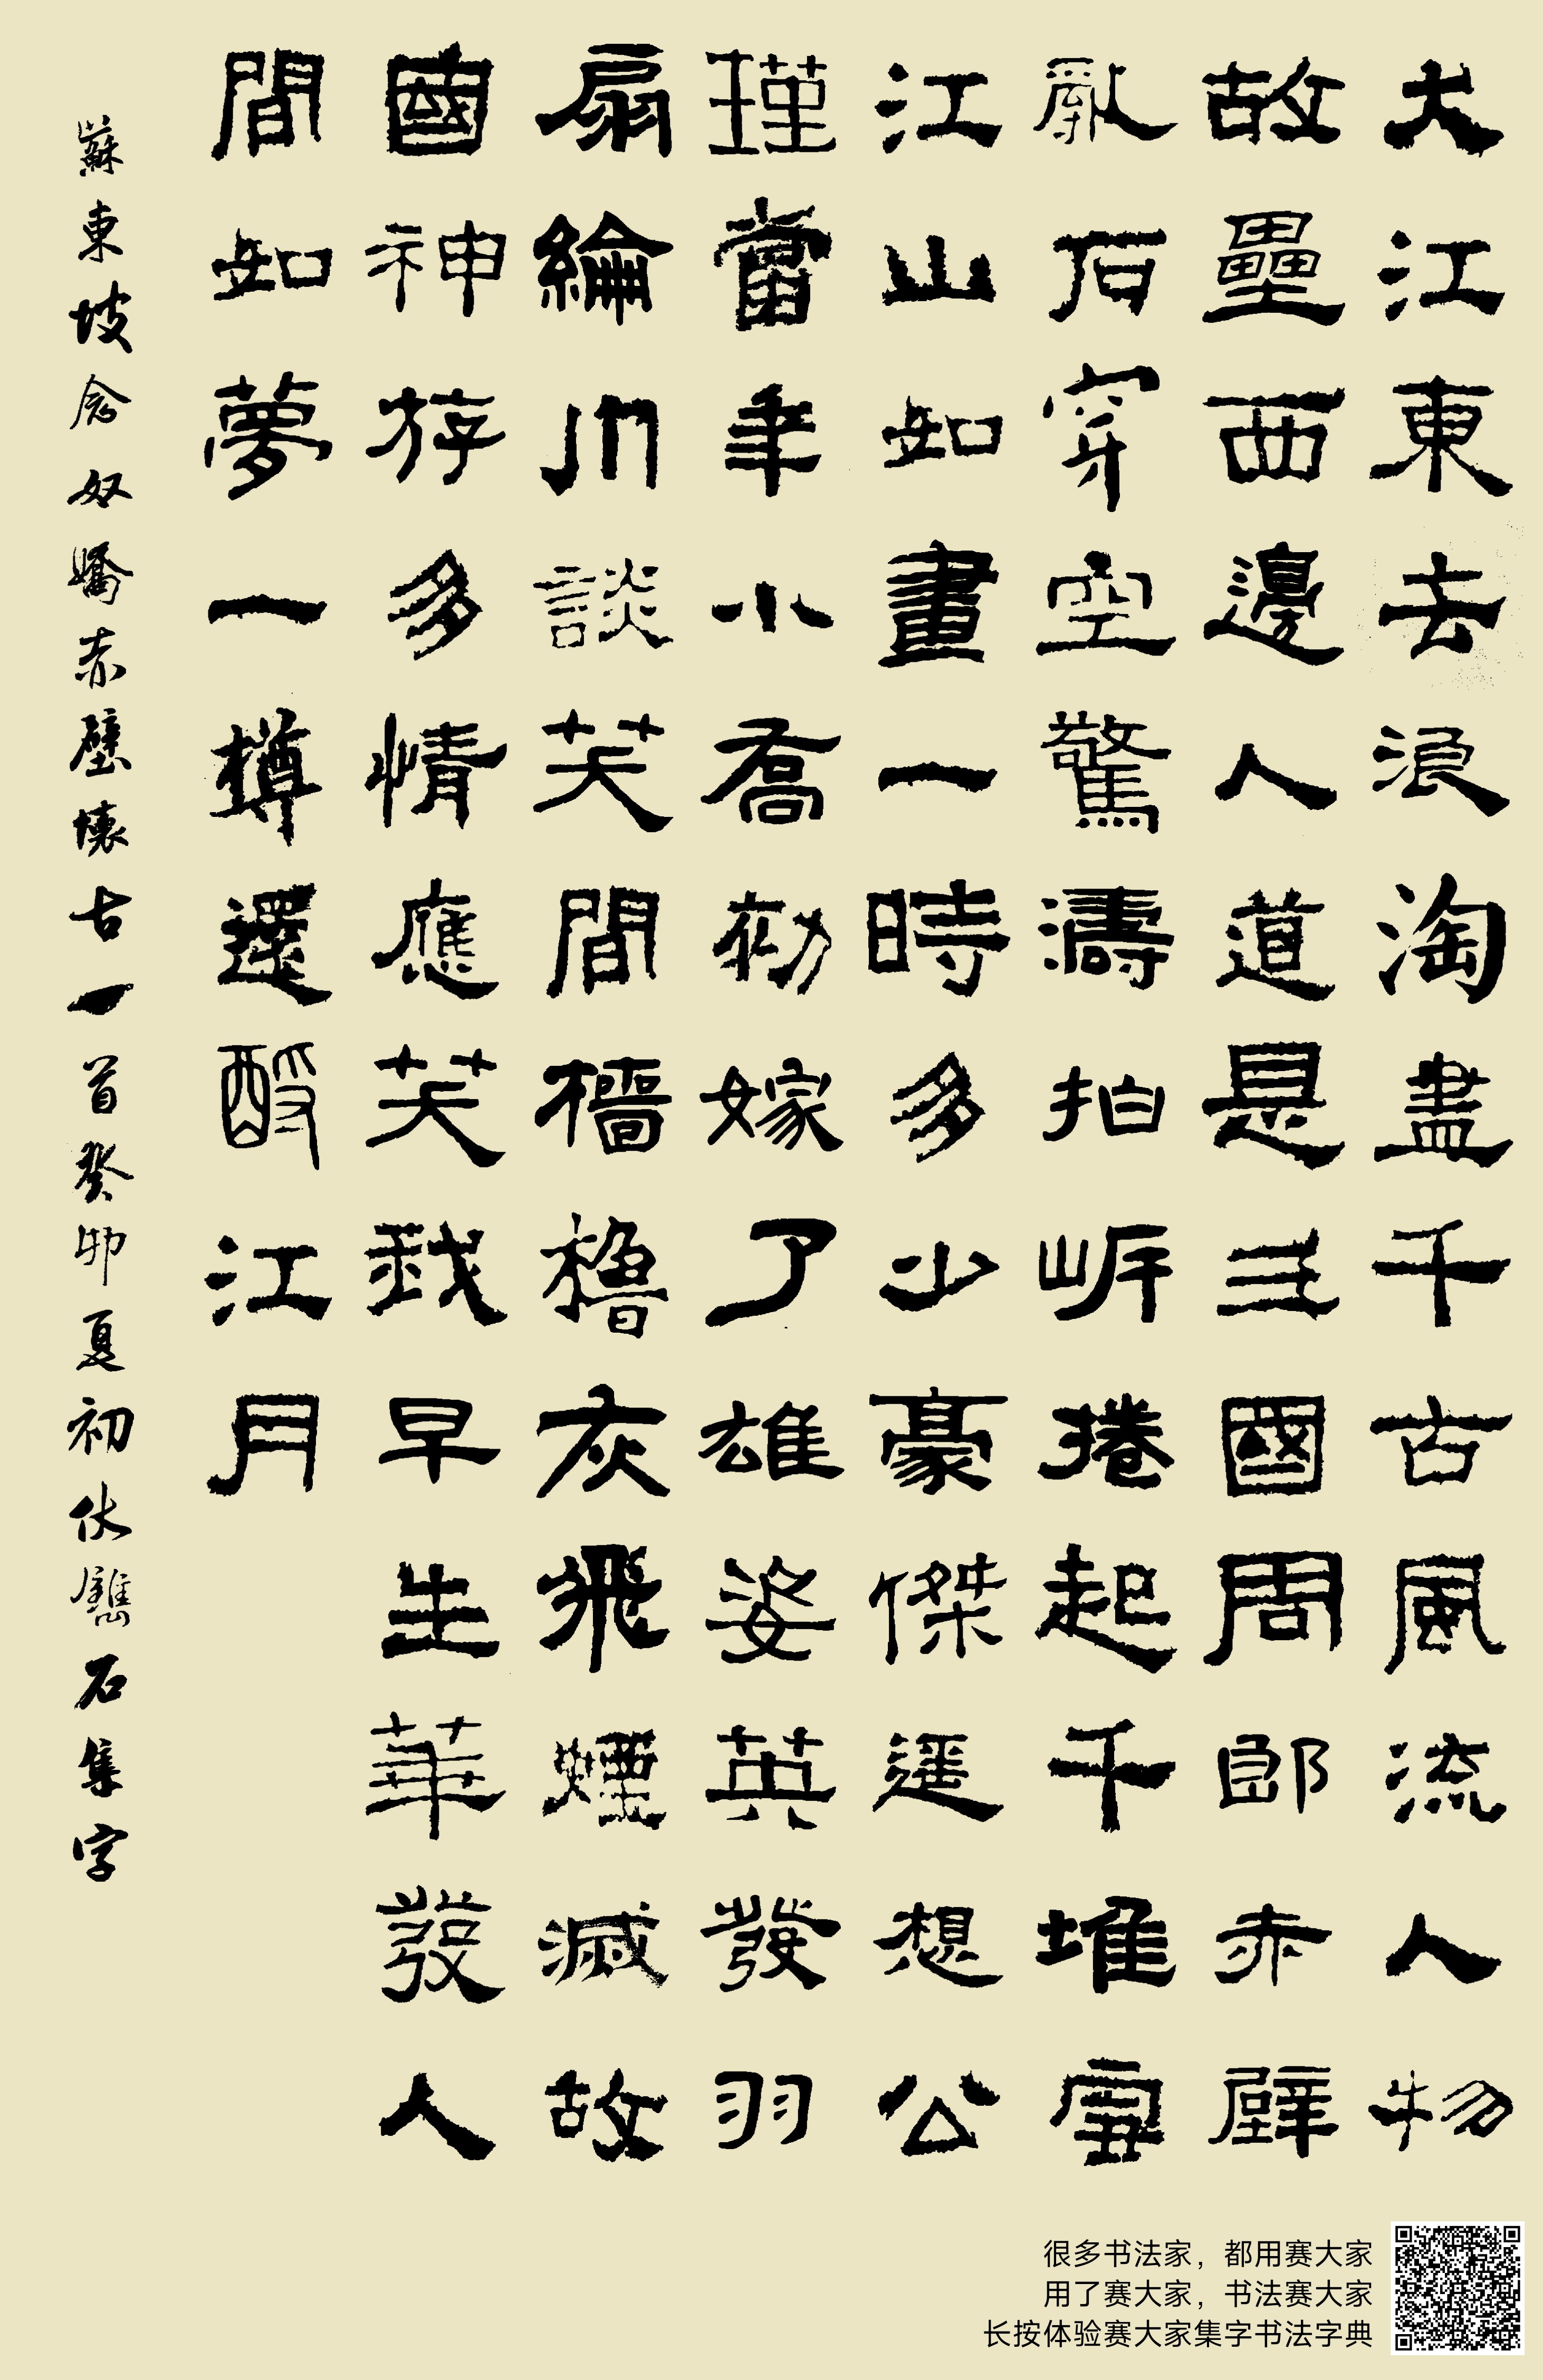 大江東去浪淘盡千古風流人物
故壘西邊人道是三國周郎赤壁
亂石穿空驚濤拍岸捲起千堆雪
江山如畫一時多少豪傑遥想公
瑾當年小喬初嫁了雄姿英發羽
扇綸巾談笑間檣櫓灰飛煙滅故
國神游多情應笑我早生華發人
間如夢一樽還酹江月
蘇東坡念奴嬌赤壁壞古一首癸卯夏初伏鐫石集字
很多书法家，都用赛大家
用了赛大家，书法赛大家
长按体验赛大家集字书法字典